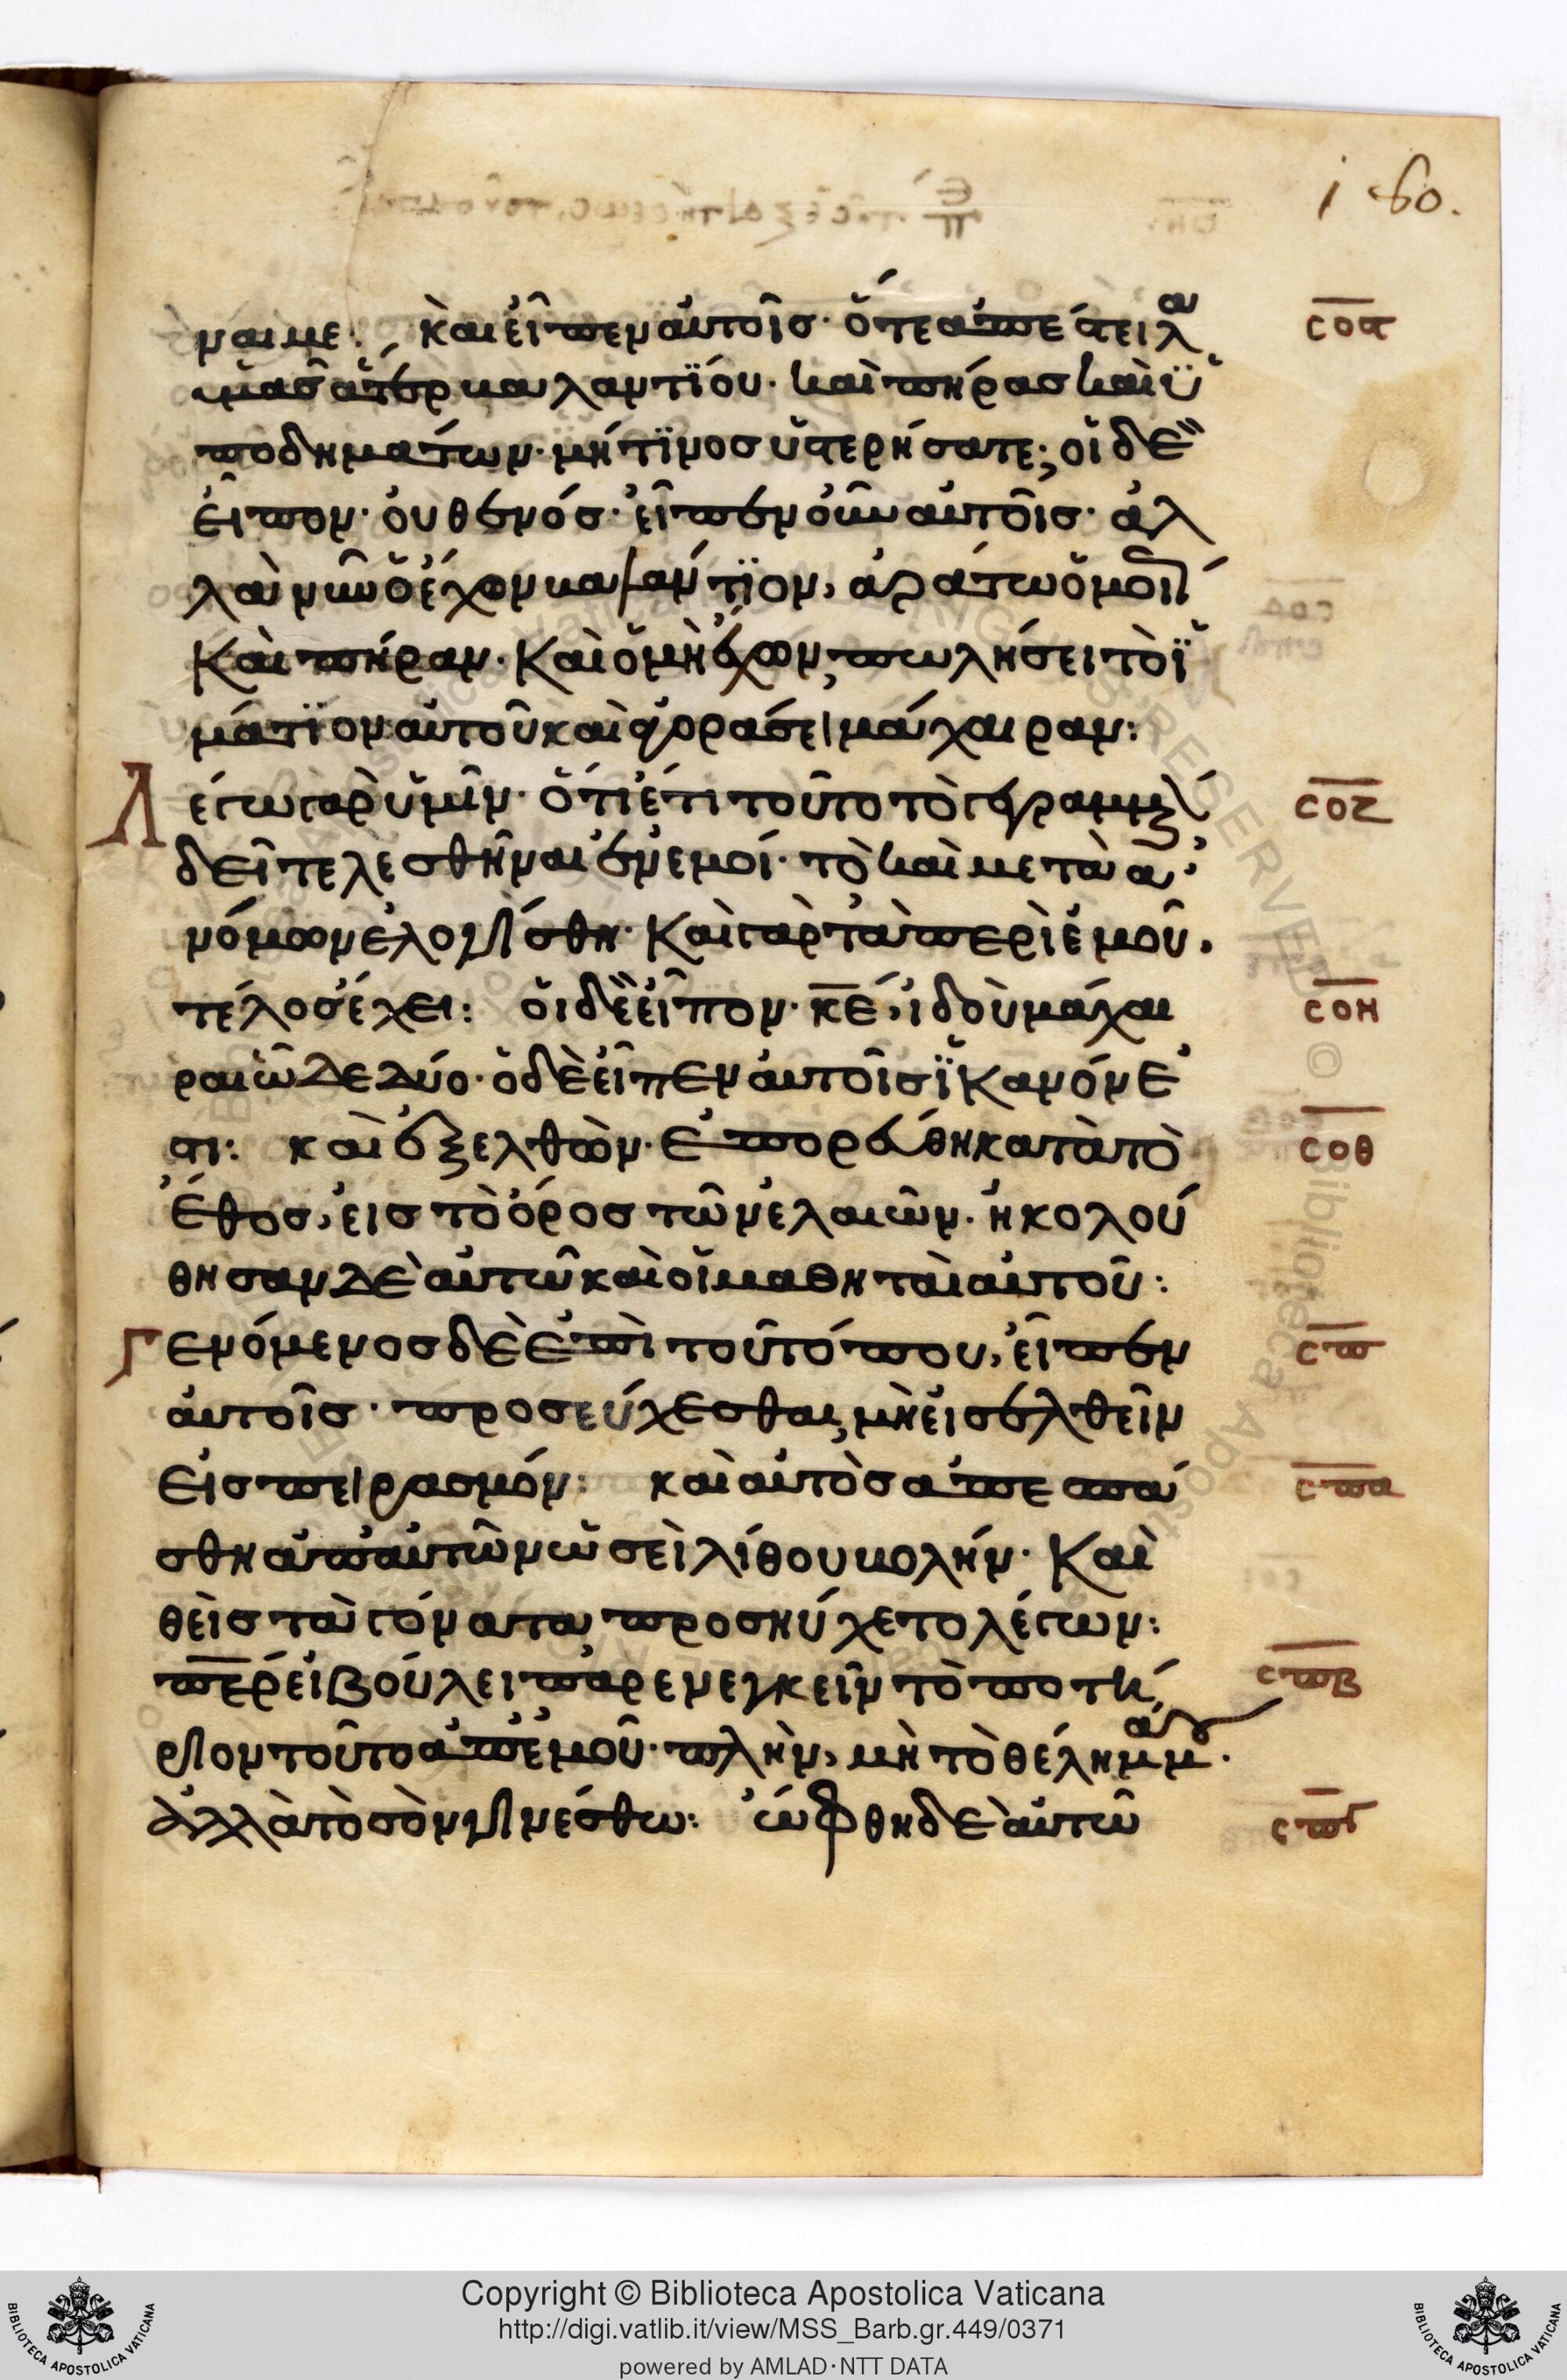 180.
ναι με: και εἶπεν αὐτοῖσ· ὅτε ἀπέστειλα
ὑμᾶσ ἄτερ βαλαντΐου· καὶ πήρασ καὶ ὑ
ποδημάτων· μή τϊνοσ ὑστερήσατε; οἱ δὲ
εἶπον· οὐθενόσ· εἶπεν οὖν αὐτοῖσ· ἀλ
λὰ νῦν ὁ ἔχων βαλάντϊον, ἀράτω ὁμοί
και πήραν· Καὶ ὁ μὴ ἔχων, πωλήσει τὸ ἱ
μάτϊον αὐτοῦ καὶ ἀγοράσει μάχαιραν:
Λέγω γὰρ ὑμῖν· ὅτι ἔτι τοῦτο τὸ γεγραμμ
δεῖ τελεσθῆναι ἐν ἐμοί· τὸ καὶ μετὰ ἀ
νόμων ἐλογίσθη· Καὶ γὰρ τὰ περὶ ἐμοῦ.
τέλοσ ἔχει: οἱ δὲ εἶπον· κε, ἰδοὺ μάχαι
ραι ὧδε δύο· ὁ δὲ εἶπεν αὐτοῖσ ἱκανόν ἐ
στι: καὶ ἐξελθὼν· ἐπορεύθη κατὰ τὸ
ἔθοσ, εἰσ τὸ ὄροσ τῶν ἐλαιῶν· ἠκολού
θησαν δὲ αὐτῶ καὶ οἱ μαθηταὶ αὐτοῦ:
Γενόμενοσ δὲ ἐπὶ τοῦ τόπου, εἶπεν
αὐτοῖσ· προσεύχεσθαι, μὴ εἰσελθεῖν
εἰσ πειρασμόν: καὶ αὐτὸσ ἀπεσπά
σθη ἀπ' αὐτῶν ὡσεὶ λίθου βολήν· Καὶ
θεὶσ τὰ γόνατα, προσηύχετο λέγων:
περ εἰ βούλει παρενεγκεῖν τὸ ποτή
ριον τοῦτο ἀπ' ἐμοῦ· πλὴν, μὴ τὸ θέλημά μ·
ἀλλὰ τὸ σὸν γινέσθω: ὤφθη δὲ αὐτῶ
σος
σοζ
σοη
σοθ
σπ
σπα
σπβ
σπγ
Copyright © Biblioteca Apostolica Vaticana
http://digi.vatlib.it/view/MSS_Barb.gr.449/0371
powered by AMLAD·NTT DATA
BIBLIOTECA APOSTOLICA VATICANA
BIBLIOTECA APOSTOLICA VATICANA